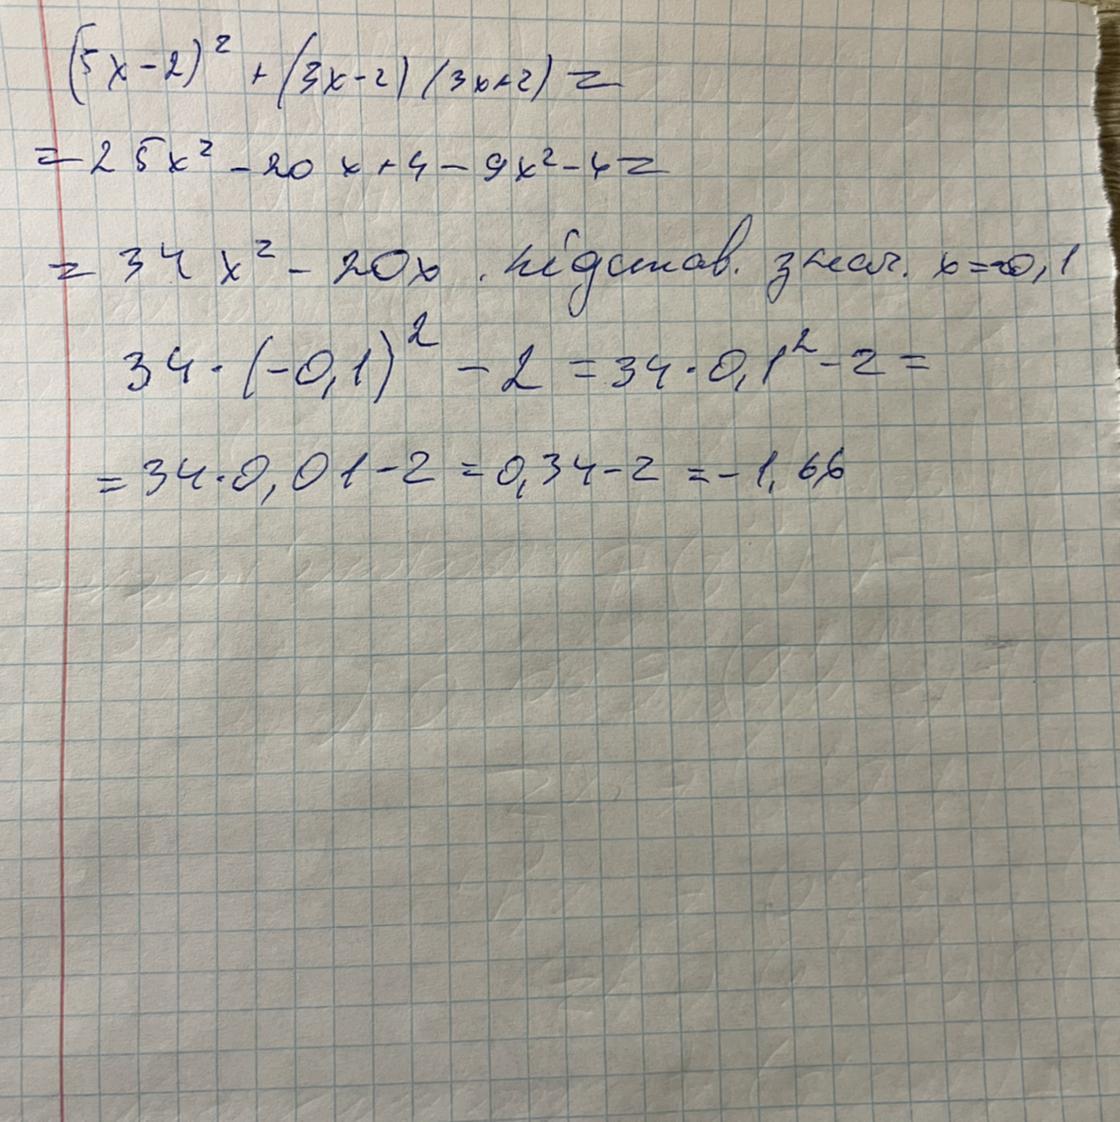 (5x-2)² + (3x-2)(3x+2) =
= 25x² - 20x + 4 - 9x² - 4 =
= 34x² - 20x . підстав. знач. x = -0,1
34 · (-0,1)² - 2 = 34 · 0,1² - 2 =
= 34 · 0,01 - 2 = 0,34 - 2 = -1,66